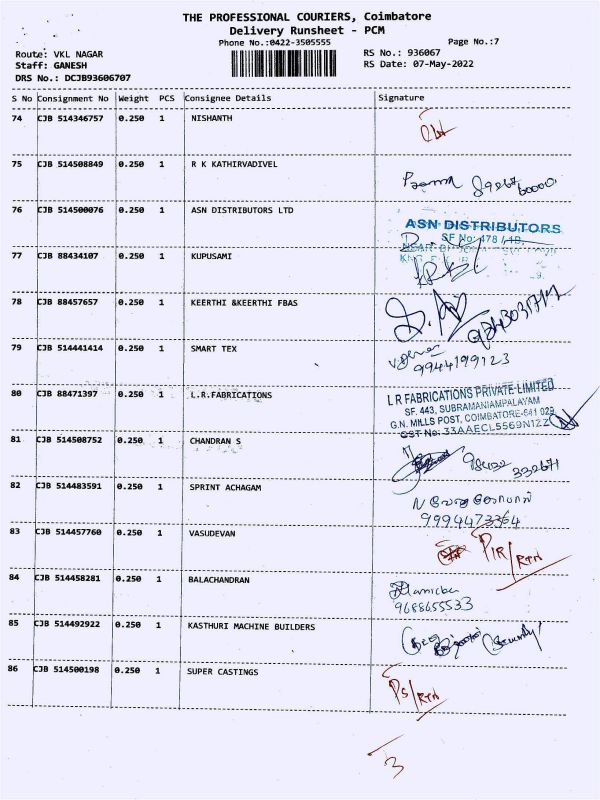 THE PROFESSIONAL COURIERS, Coimbatore
Delivery Runsheet - PCM
Phone No.:0422-3505555
Page No.:7
Route: VKL NAGAR
RS No.: 936067
Staff: GANESH
RS Date: 07-May-2022
DRS No.: DCJB93606707
S No Consignment No Weight PCS Consignee Details Signature
74 CJB 514346757 0.250 1 NISHANTH
75 CJB 514508849 0.250 1 R K KATHIRVADIVEL
76 CJB 514500076 0.250 1 ASN DISTRIBUTORS LTD
ASN DISTRIBUTORS
SF No: 478
77 CJB 88434107 0.250 1 KUPUSAMI
78 CJB 88457657 0.250 1 KEERTHI &KEERTHI FBAS
79 CJB 514441414 0.250 1 SMART TEX
9944199123
80 CJB 88471397 0.250 1 L.R.FABRICATIONS
L R FABRICATIONS PRIVATE LIMITED
SF. 443, SUBRAMANIAMPALAYAM
G.N. MILLS POST, COIMBATORE-641 029
GST No: 33AAECL5569N1ZZ
81 CJB 514508752 0.250 1 CHANDRAN S
82 CJB 514483591 0.250 1 SPRINT ACHAGAM
9994473364
83 CJB 514457760 0.250 1 VASUDEVAN
PIR/RTN
84 CJB 514458281 0.250 1 BALACHANDRAN
9688655533
85 CJB 514492922 0.250 1 KASTHURI MACHINE BUILDERS
(Security)
86 CJB 514500198 0.250 1 SUPER CASTINGS
PS/RTN
3